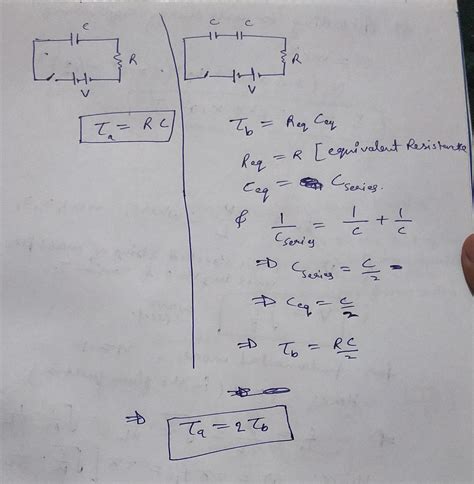 C
R
V
τa = RC
C C
R
V
τb = Req Ceq
Req = R [equivalent Resistance
Ceq = Cseries.
& 1/Cseries = 1/C + 1/C
⇒ Cseries = C/2
⇒ Ceq = C/2
⇒ τb = RC/2
⇒ τa = 2τb